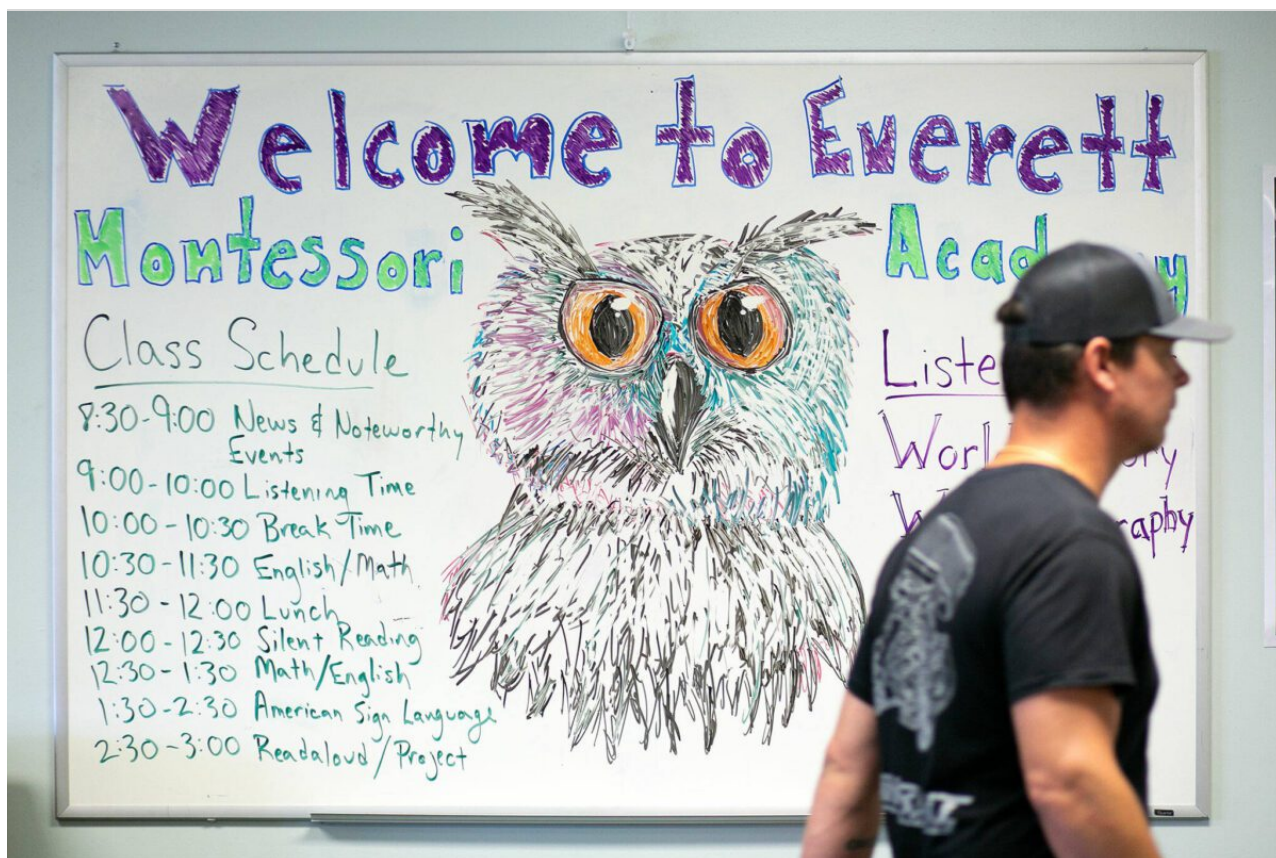 Welcome to Everett
Montessori
Class Schedule
8:30-9:00 News & Noteworthy
Events
9:00-10:00 Listening Time
10:00-10:30 Break Time
10:30-11:30 English/Math
11:30-12:00 Lunch
12:00-12:30 Silent Reading
12:30-1:30 Math/English
1:30-2:30 American Sign Language
2:30-3:00 Readaloud/Project